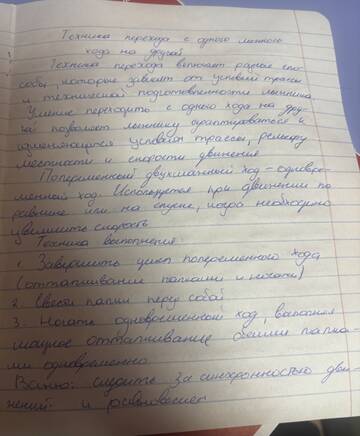 Техника перехода с одного лыжного
хода на другой
Техника перехода включает разные спо-
собы, которые зависят от условий трассы
и технической подготовленности лыжника.
Умение переходить с одного хода на дру-
гой позволяет лыжнику адаптироваться к
изменяющимся условиям трассы, рельефу
местности и скорости движения
Попеременный двухшажный ход – одновре-
менный ход. Используется при движении по
равнине или на спуске, когда необходимо
увеличить скорость
Техника выполнения:
1. Завершить цикл попеременного хода
(отталкивание палками и ногами)
2. Свести палки перед собой
3. Начать одновременный ход, выполняя
мощное отталкивание обеими палка-
ми одновременно
Важно: следить за синхронностью дви-
жений и равновесием